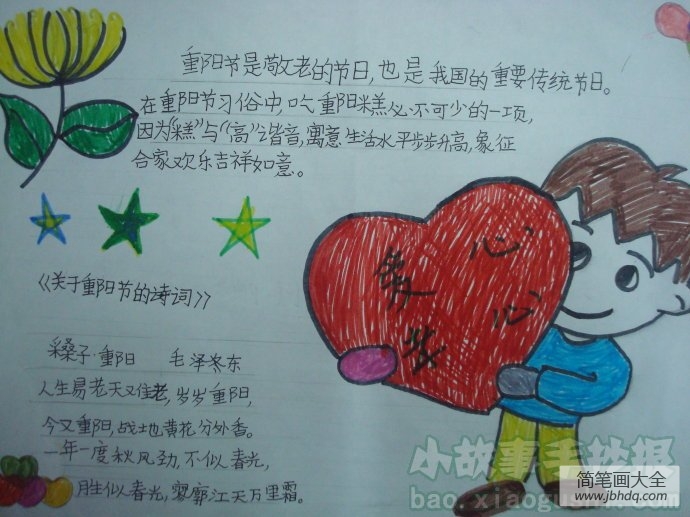 重阳节是敬老的节日,也是我国的重要传统节日。
在重阳节习俗中,吃重阳糕必不可少的一项,
因为“糕”与“高”谐音,寓意生活水平步步升高,象征
合家欢乐吉祥如意。
爱心
心
《关于重阳节的诗词》
采桑子·重阳 毛泽东
人生易老天又难老,岁岁重阳,
今又重阳,战地黄花分外香。
一年一度秋风劲,不似春光,
胜似春光,寥廓江天万里霜。
小故事手抄报
bao.xiaogushi.com
简笔画大全
www.jbhdq.com